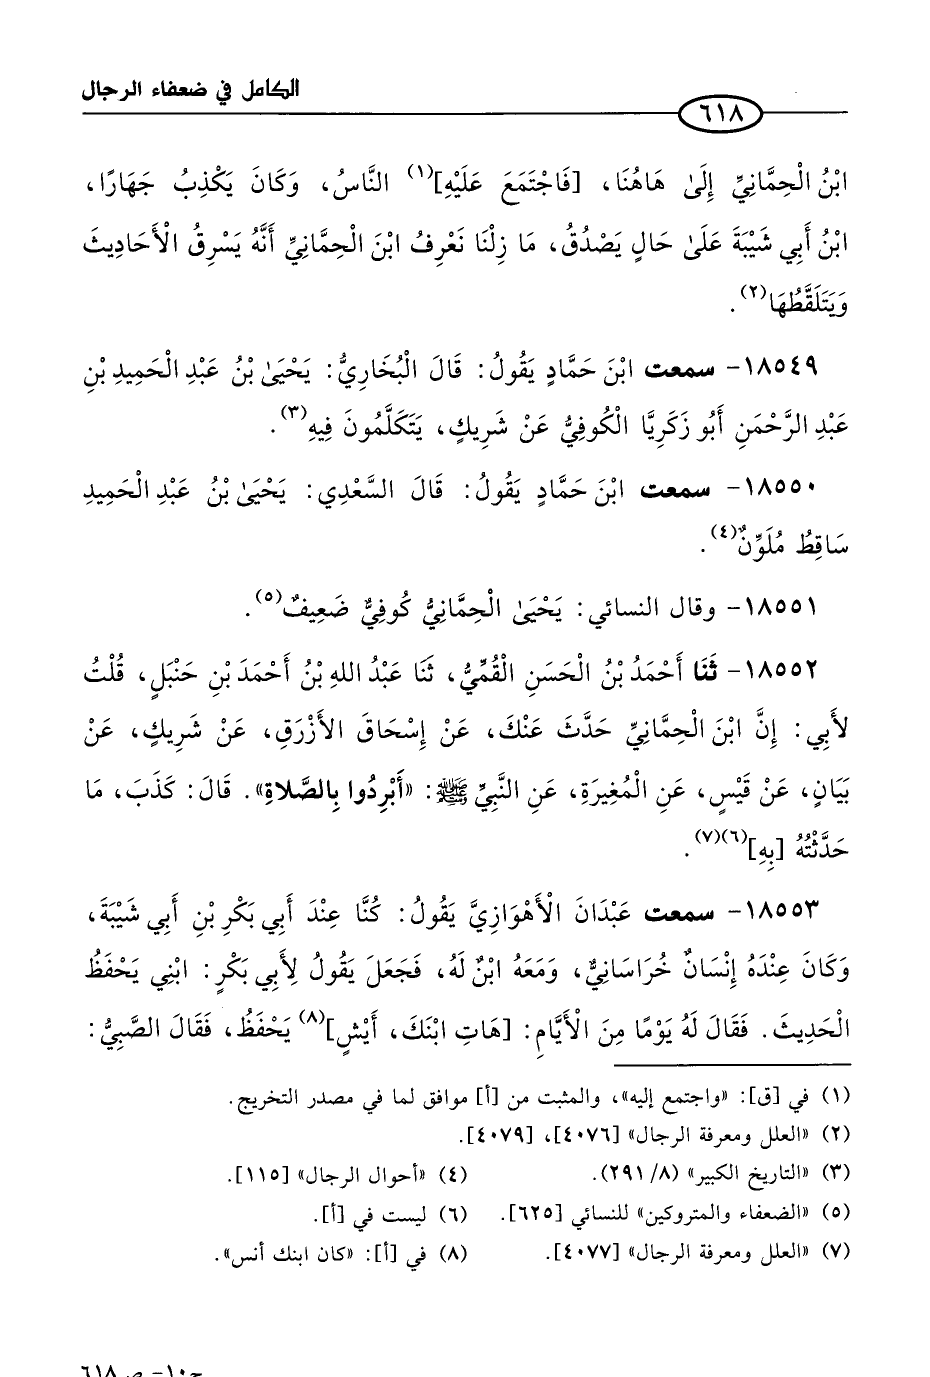 الكامل في ضعفاء الرجال
٦١٨
ابْنُ الْحِمَّانِيِّ إِلَىٰ هَاهُنَا، [فَاجْتَمَعَ عَلَيْهِ](١) النَّاسُ، وَكَانَ يَكْذِبُ جَهَارًا،
ابْنُ أَبِي شَيْبَةَ عَلَىٰ حَالٍ يَصْدُقُ، مَا زِلْنَا نَعْرِفُ ابْنَ الْحِمَّانِيِّ أَنَّهُ يَسْرِقُ الْأَحَادِيثَ
وَيَتَلَقَّطُهَا(٢).
١٨٥٤٩- سمعت ابْنَ حَمَّادٍ يَقُولُ: قَالَ الْبُخَارِيُّ: يَحْيَىٰ بْنُ عَبْدِ الْحَمِيدِ بْنِ
عَبْدِ الرَّحْمَنِ أَبُو زَكَرِيَّا الْكُوفِيُّ عَنْ شَرِيكٍ، يَتَكَلَّمُونَ فِيهِ(٣).
١٨٥٥٠- سمعت ابْنَ حَمَّادٍ يَقُولُ: قَالَ السَّعْدِي: يَحْيَىٰ بْنُ عَبْدِ الْحَمِيدِ
سَاقِطُ مُلَوِّنٌ(٤).
١٨٥٥١- وقال النسائي: يَحْيَىٰ الْحِمَّانِيُّ كُوفِيٌّ ضَعِيفٌ(٥).
١٨٥٥٢- ثَنَا أَحْمَدُ بْنُ الْحَسَنِ الْقُمِّيُّ، ثَنَا عَبْدُ اللهِ بْنُ أَحْمَدَ بْنِ حَنْبَلٍ، قُلْتُ
لأَبِي: إِنَّ ابْنَ الْحِمَّانِيِّ حَدَّثَ عَنْكَ، عَنْ إِسْحَاقَ الأَزْرَقِ، عَنْ شَرِيكٍ، عَنْ
بَيَانٍ، عَنْ قَيْسٍ، عَنِ الْمُغِيرَةِ، عَنِ النَّبِيِّ ﷺ: «أَبْرِدُوا بِالصَّلَاةِ». قَالَ: كَذَبَ، مَا
حَدَّثْتُهُ [بِهِ](٦)(٧).
١٨٥٥٣- سمعت عَبْدَانَ الْأَهْوَازِيَّ يَقُولُ: كُنَّا عِنْدَ أَبِي بَكْرِ بْنِ أَبِي شَيْبَةَ،
وَكَانَ عِنْدَهُ إِنْسَانٌ خُرَاسَانِيٌّ، وَمَعَهُ ابْنٌ لَهُ، فَجَعَلَ يَقُولُ لِأَبِي بَكْرٍ: ابْنِي يَحْفَظُ
الْحَدِيثَ. فَقَالَ لَهُ يَوْمًا مِنَ الْأَيَّامِ: [هَاتِ ابْنَكَ، أَيْشٍ](٨) يَحْفَظُ، فَقَالَ الصَّبِيُّ:
(١) في [ق]: «واجتمع إليه»، والمثبت من [أ] موافق لما في مصدر التخريج.
(٢) «العلل ومعرفة الرجال» [٤٠٧٦]، [٤٠٧٩].
(٣) «التاريخ الكبير» (٨/ ٢٩١). (٤) «أحوال الرجال» [١١٥].
(٥) «الضعفاء والمتروكين» للنسائي [٦٢٥]. (٦) ليست في [أ].
(٧) «العلل ومعرفة الرجال» [٤٠٧٧]. (٨) في [أ]: «كان ابنك أنس».
ج١٠- ص٦١٨